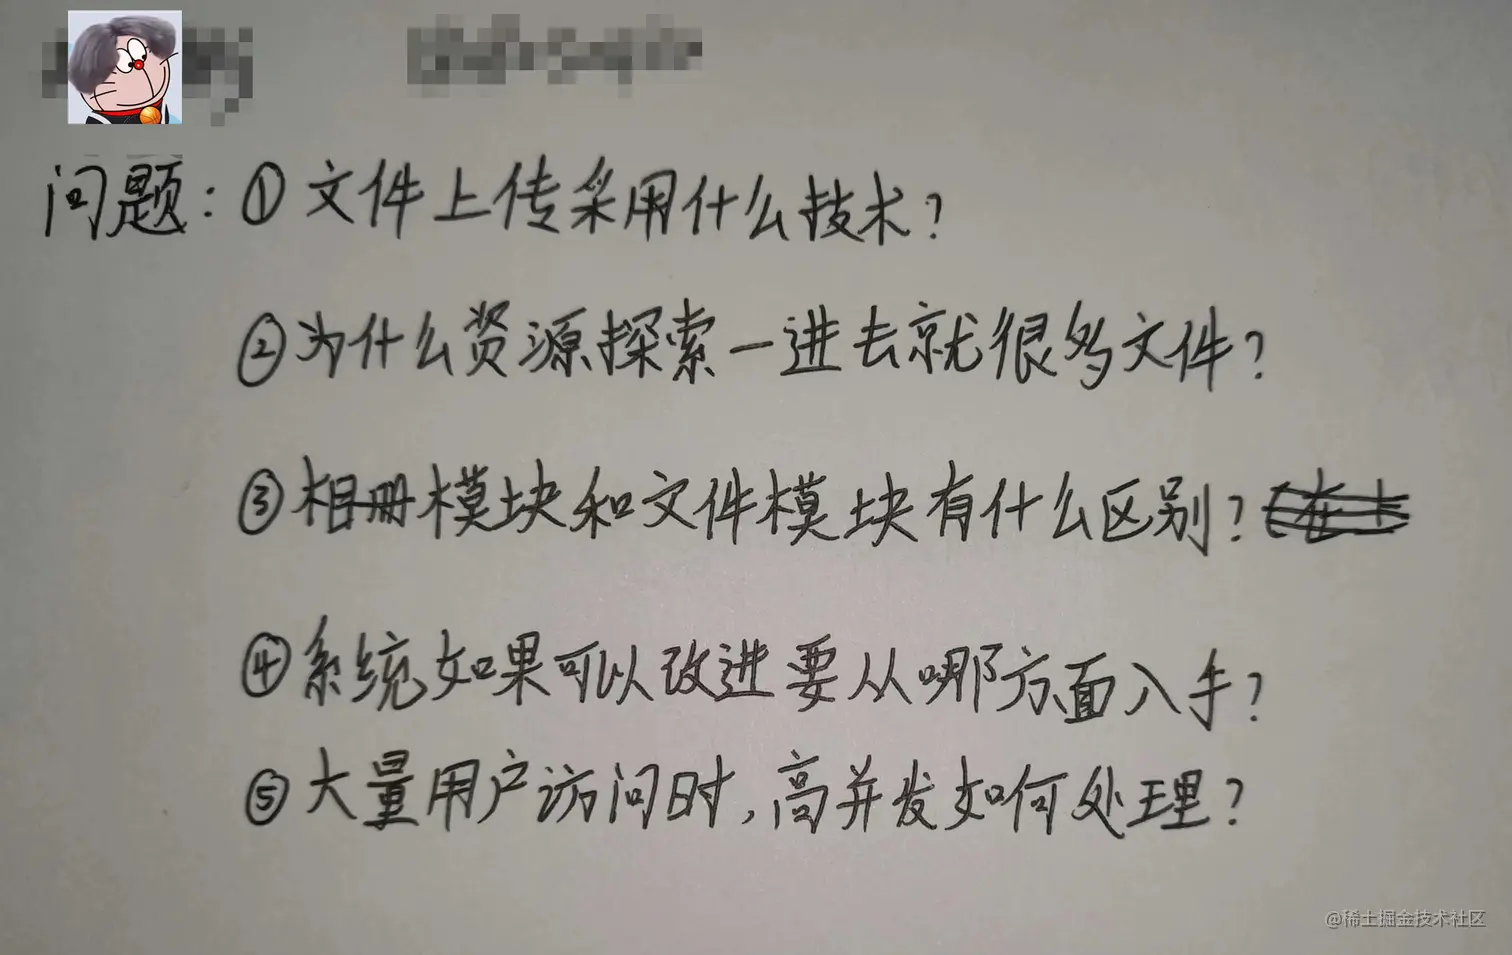 问题：①文件上传采用什么技术？
②为什么资源探索一进去就很多文件？
③相册模块和文件模块有什么区别？
④系统如果可以改进要从哪方面入手？
⑤大量用户访问时，高并发如何处理？
@稀土掘金技术社区